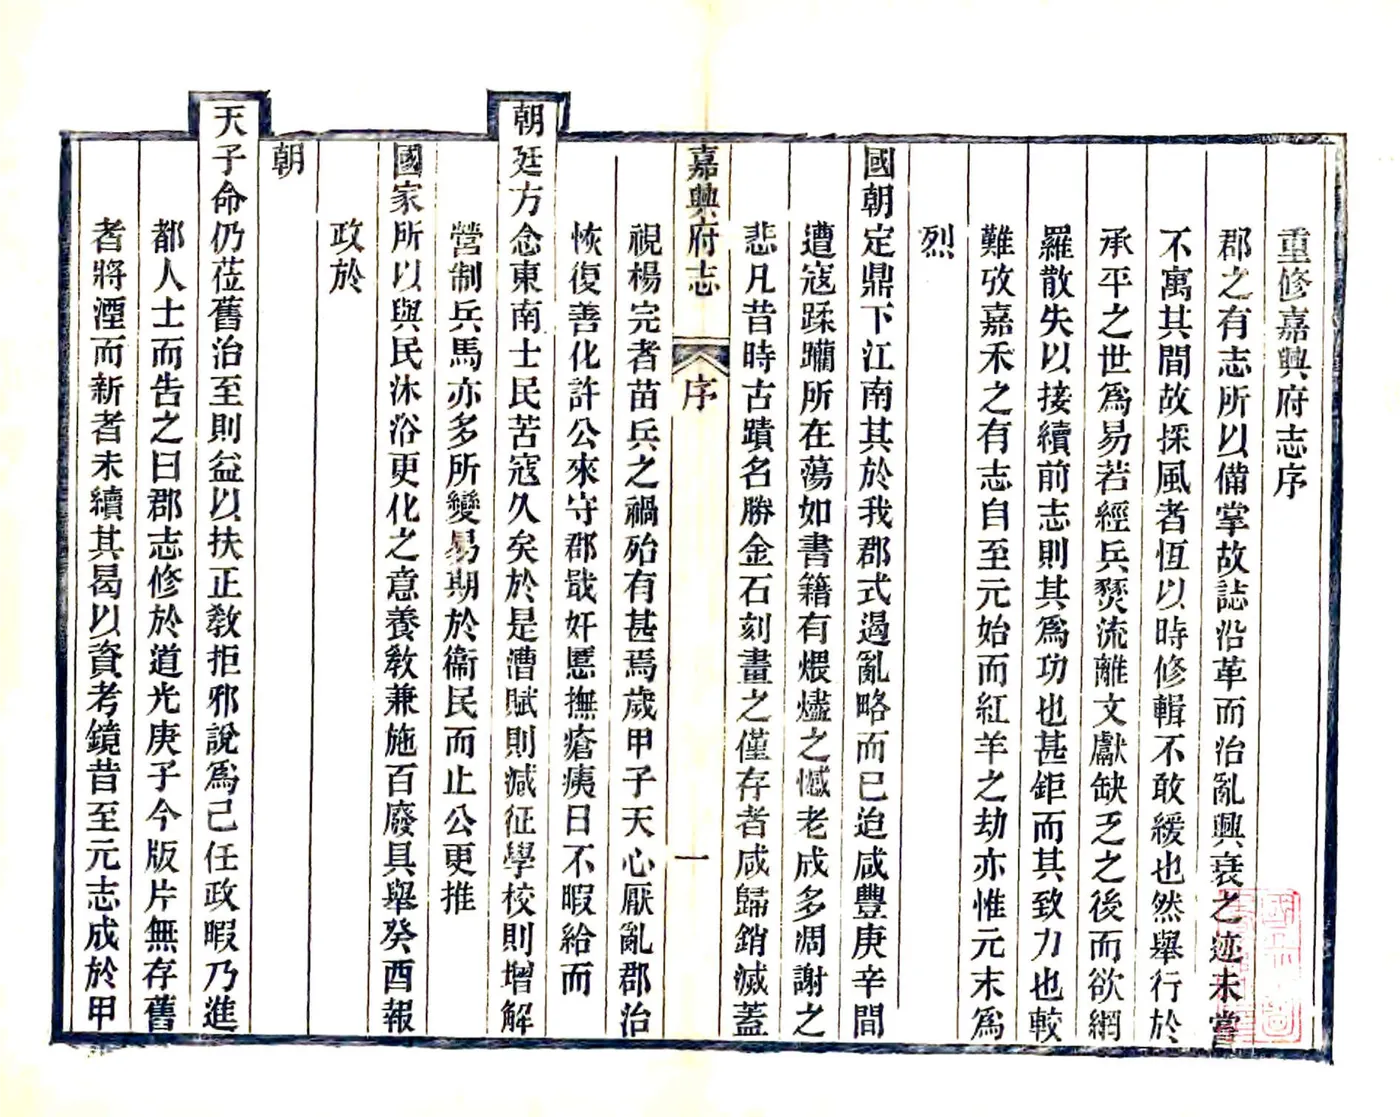 重修嘉興府志序
郡之有志所以備掌故誌沿革而治亂興衰之迹未嘗
不寓其間故採風者恆以時修輯不敢緩也然舉行於
承平之世爲易若經兵燹流離文獻缺乏之後而欲網
羅散失以接續前志則其爲功也甚鉅而其致力也較
難攷嘉禾之有志自至元始而紅羊之劫亦惟元末爲
烈
國朝定鼎下江南其於我郡式遏亂略而已迨咸豐庚辛間
遭寇蹂躪所在蕩如書籍有煨燼之憾老成多凋謝之
悲凡昔時古蹟名勝金石刻畫之僅存者咸歸銷滅蓋
嘉興府志 序 一
視楊完者苗兵之禍殆有甚焉歲甲子天心厭亂郡治
恢復善化許公來守郡戢奸慝撫瘡痍日不暇給而
朝廷方念東南士民苦寇久矣於是漕賦則減征學校則增解
營制兵馬亦多所變易期於衞民而止公更推
國家所以與民沐浴更化之意養敎兼施百廢具舉癸酉報
政於
朝
天子命仍莅舊治至則益以扶正敎拒邪說爲己任政暇乃進
都人士而告之曰郡志修於道光庚子今版片無存舊
者將湮而新者未續其曷以資考鏡昔至元志成於甲